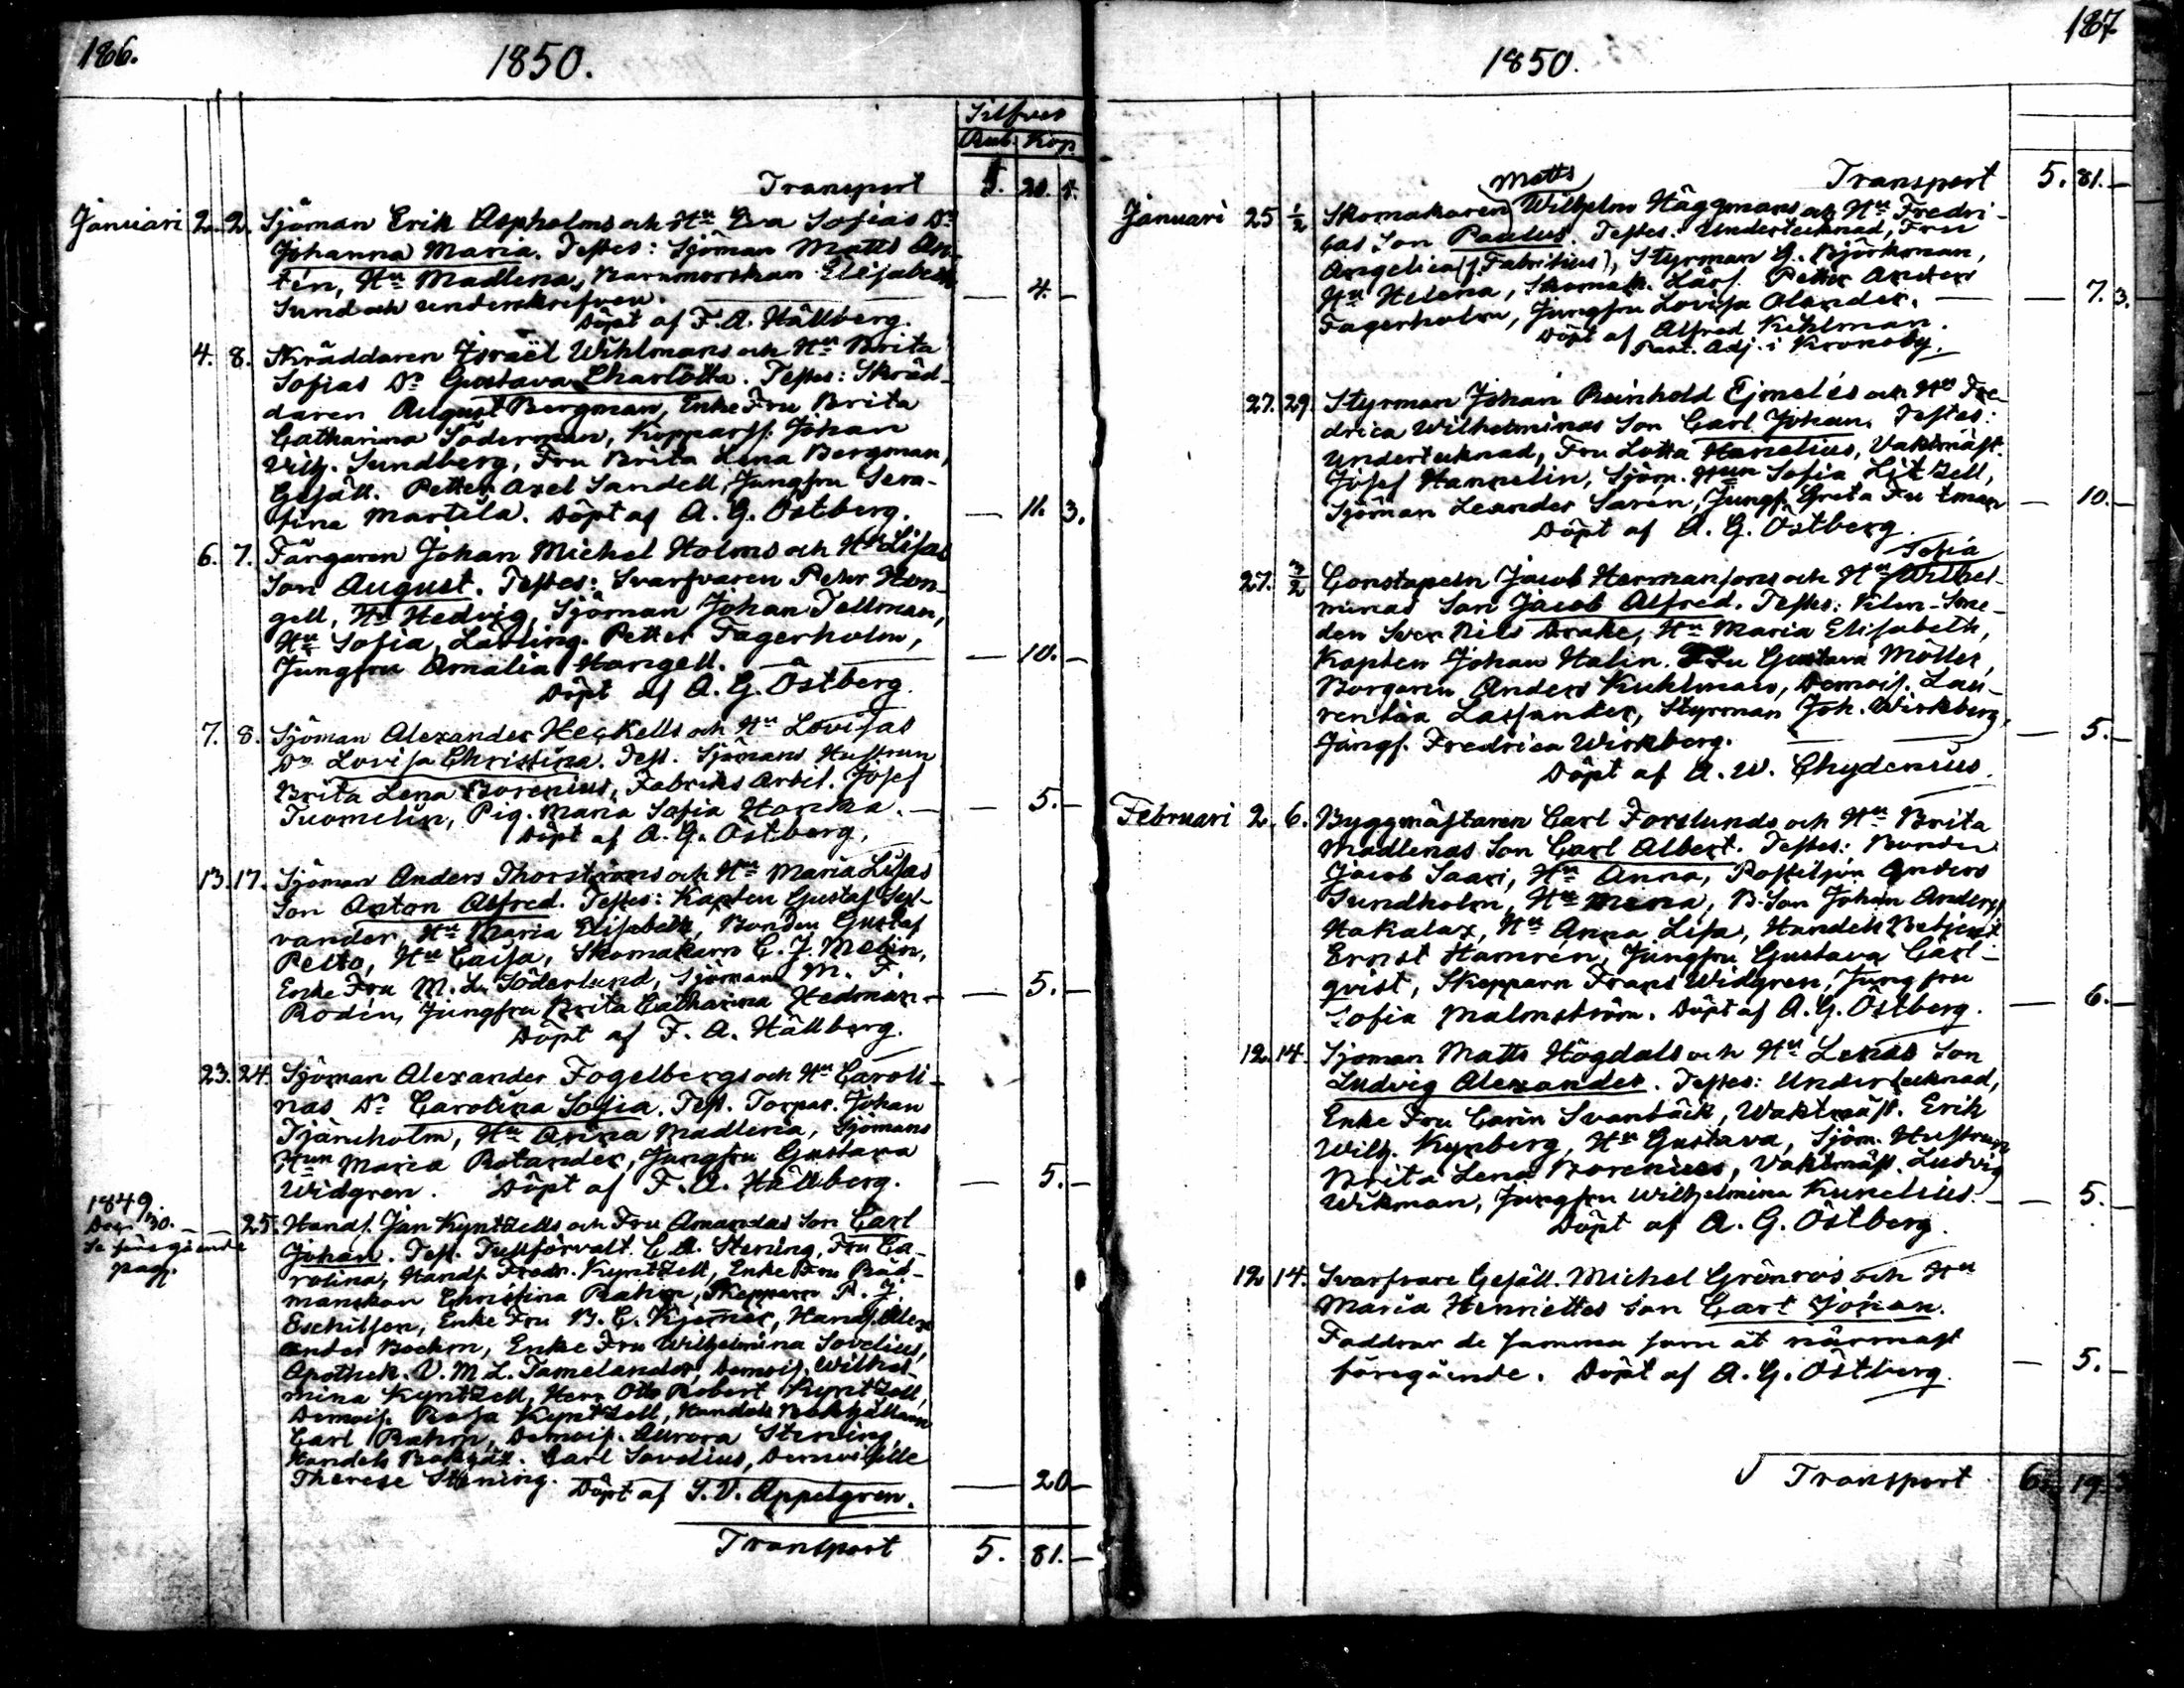 186.
1850.
Silfver
Rub. Kop.
Transport 5. 20. 5.
Januari 2. 2. Sjöman Erik Aspholms och Hu Eva Sofias Dr
Johanna Maria. Testes: Sjöman Matts An-
tén, Hu Madlena, Barnmorskan Elisabeth
Sund och underskrifven. — 4. —
Döpt af F. A. Hällberg.
4. 8. Skräddaren Israël Wihlmans och Hu Brita
Sofias Dr Gustava Charlotta. Testes: Skräd-
daren August Bergman, Enke Fru Brita
Catharina Söderman, Kopparsl. Johan
Vilh. Sundberg, Fru Brita Lena Bergman,
Gesäll. Petter Axel Sandell, Jungfru Sera-
fina Martila. Döpt af A. G. Östberg. — 11. 3.
6. 7. Färgaren Johan Michel Holms och Hu Lisas
Son August. Testes: Svarfvaren Petur Hon-
gell, Hu Hedvig, Sjöman Johan Tellman,
Hu Sofia, Lärling. Petter Fagerholm,
Jungfru Amalia Hongell. — 10. —
Döpt af A. G. Östberg.
7. 8. Sjöman Alexander Heckells och Hu Lovisas
Dr Lovisa Christina. Test. Sjömans Hustrun
Brita Lena Borenius, Fabriks Arbet. Josef
Tuomelin, Pig. Maria Sofia Honka. — 5. —
Döpt af A. G. Östberg.
13. 17. Sjöman Anders Thorströms och Hu Maria Lisas
Son Anton Alfred. Testes: Kapten Gustaf Syl-
vander, Hu Maria Elisabeth, Bonden Gustaf
Pelto, Hu Caisa, Skomakarn C. J. Melin,
Enke Fru M. L. Söderlund, Sjöman M. F.
Rodén, Jungfru Brita Catharina Hedman. — 5. —
Döpt af F. A. Hällberg.
23. 24. Sjöman Alexander Fogelbergs och Hu Caroli-
nas Dr Carolina Sofia. Test. Torpar. Johan
Tjäruholm, Hu Anna Madlena, Sjömans
Hun Maria Rotander, Jungfru Gustava
Widgren. Döpt af F. A. Hällberg. — 5. —
1849.
Decr 30.
Se föregående
pag.
25. Handl. Jan Kyntzells och Fru Amandas Son Carl
Johan. Test. Tullförvalt. C. A. Stening, Fru Ca-
rolina, Handl. Fredr. Kyntzell, Enke Fru Råd-
manskan Christina Rahm, Skepparn P. J.
Eschilsen, Enke Fru B. C. Kjemer, Handl. Alex-
ander Boehm, Enke Fru Wilhelmina Sovelius,
Apothek. V. M. L. Tamelander, Demois. Wilhel-
mina Kyntzell, Herr Otto Robert Kyntzell,
Demois. Rosa Kyntzell, Handels Bokhållaren
Carl Rahm, Demois. Aurora Stening,
Handels Bokhål. Carl Sovelius, Demoiselle
Therese Stening. Döpt af S. V. Appelgren. — 20. —
Transport 5. 81. —
187.
1850.
Transport 5. 81. —
Matts
Januari 25 1/2 Skomakaren Wilhelm Häggmans och Hu Fredri-
cas Son Paulus. Testes: Undertecknad, Fru
Angelica (f. Fabritius), Styrman G. Björkman,
Hu Helena, Skomak. Lärl. Petter Anders
Fagerholm, Jungfru Lovisa Olander. — 7. 3.
Döpt af Alfred Kihlman.
Past. Adj. i Kronoby.
27. 29. Styrman Johan Reinhold Ejmelés och Hu Fre-
drica Wilhelminas Son Carl Johan. Testes:
Undertecknad, Fru Lotta Hanelius, Vaktmäst.
Josef Hannelin, Sjöm. Hun Sofia Litzell,
Sjöman Leander Sarén, Jungf. Greta — 10. —
Döpt af A. G. Östberg.
Sofia
27. 3/2 Constapeln Jacob Hermansons och Hu Wilhel-
minas Son Jacob Alfred. Testes: Klen-Sme-
den Sven Nils Drake, Hu Maria Elisabeth,
Kapten Johan Halin. Fru Gustava Möller,
Borgaren Anders Kuhlman, Demois. Lau-
rentia Lassander, Styrman Joh. Wirkberg,
Jungf. Fredrica Wirkberg. — 5. —
Döpt af A. W. Chydenius.
Februari 2. 6. Byggmästaren Carl Forslunds och Hu Brita
Madlenas Son Carl Albert. Testes: Bonden
Jacob Saari, Hu Anna, Postiljon Anders
Sundholm, Hu Mina, B. Son Johan Anders
Hakalax, Hu Anna Lisa, Handels Betjent
Ernst Hamrén, Jungfru Gustava Carl-
qvist, Skepparn Frans Widgren, Jungfru
Sofia Malmström. Döpt af A. G. Östberg. — 6. —
12. 14. Sjöman Matts Högdals och Hu Lenas Son
Ludvig Alexander. Testes: Undertecknad,
Enke Fru Carin Svanbäck, Waktmäst. Erik
Wilh. Kynberg, Hu Gustava, Sjöm. Hustrun
Brita Lena Borenius, Vaktmäst. Ludvig
Wikman, Jungfru Wilhelmina Kunelius. — 5. —
Döpt af A. G. Östberg.
12. 14. Svarfvare Gesäll. Michel Grönros och Hu
Maria Henriettes Son Carl Johan.
Faddrar de samma som åt närmast
föregående. Döpt af A. G. Östberg. — 5. —
Transport 6. 19. 3